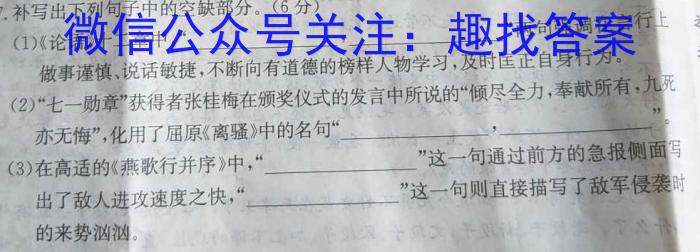 7.补写出下列句子中的空缺部分。(6分)
微信公众号关注：趣找答案
(1)《论 行上
做事谨慎、说话敏捷,不断向有道德的榜样人物学习,及时匡正自身行为。
(2)“七一勋章”获得者张桂梅在颁奖仪式的发言中所说的“倾尽全力,奉献所有,九死
亦无悔”,化用了屈原《离骚》中的名句“ , ”。
(3)在高适的《燕歌行并序》中,“ ”这一句通过前方的急报侧面写
出了敌人进攻速度之快,“ ”这一句则直接描写了敌军侵袭时
的来势汹汹。